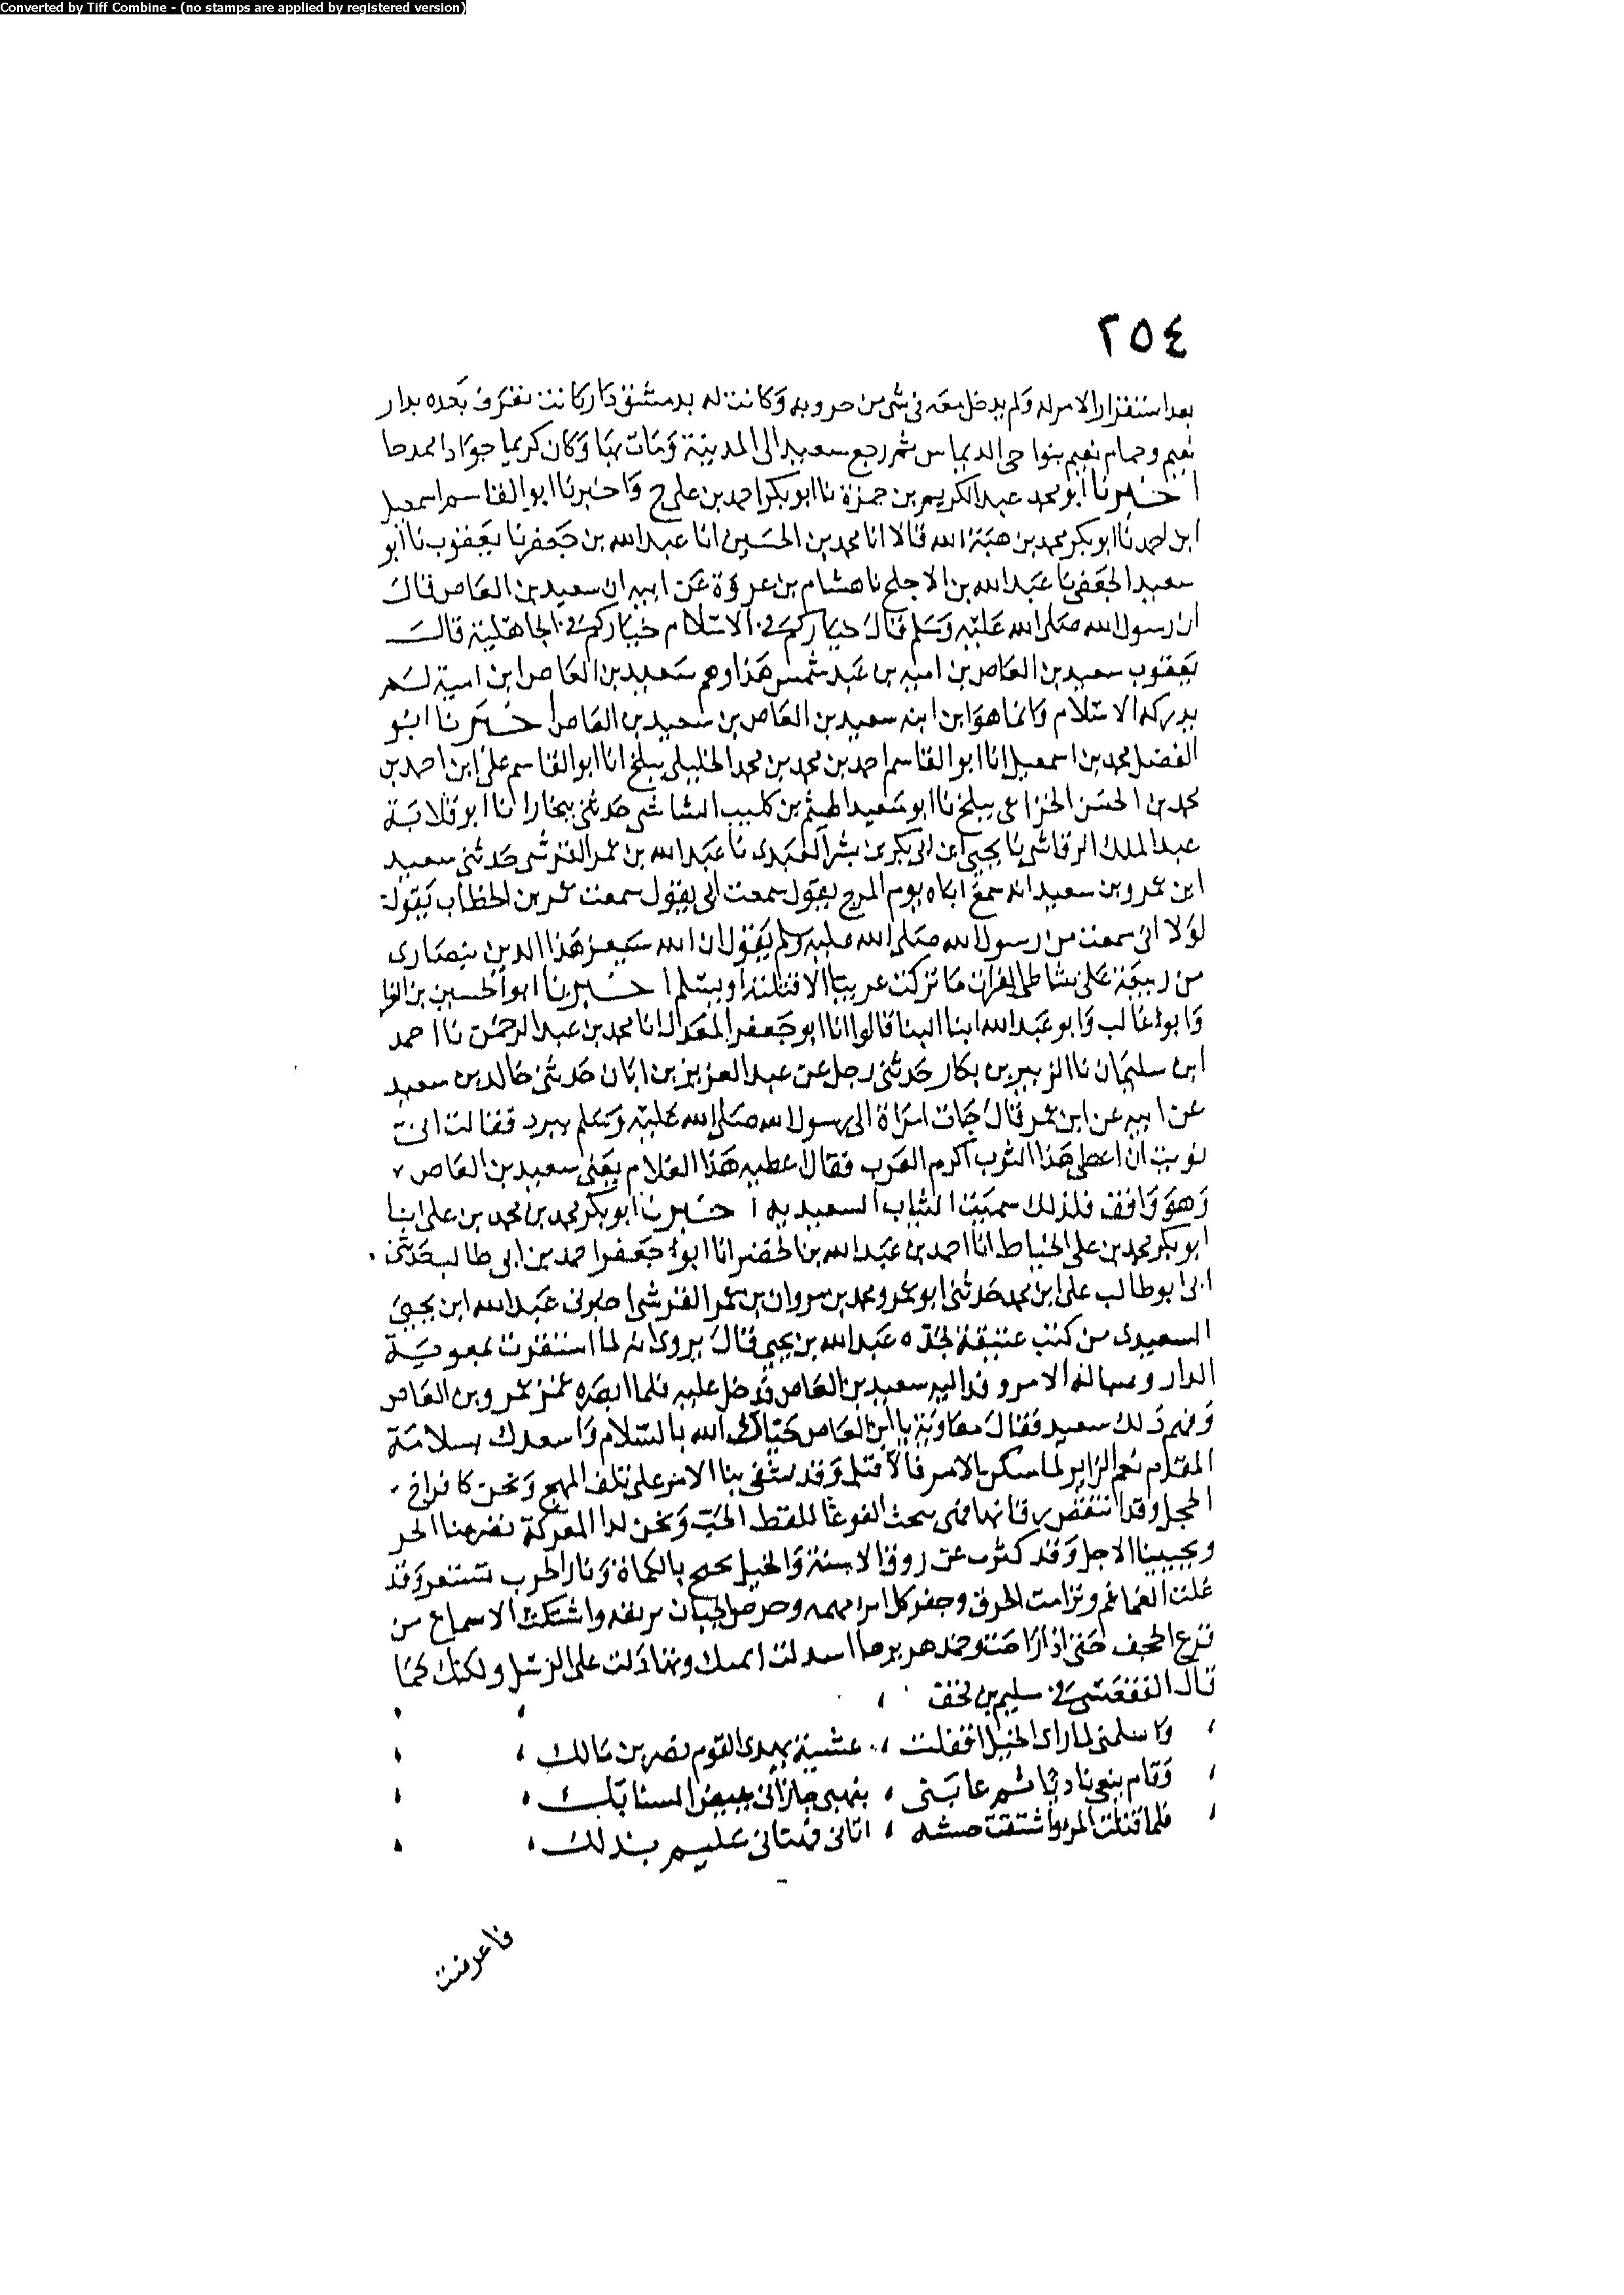 Converted by Tiff Combine - (no stamps are applied by registered version)
٢٥٤
بعد استقرار الامر له ولم يدخل معه في شى من حروبه وكانت له بدمشق دار كانت تعرف بعده بدار
نعيم وحمام نعيم بنواحى الديماس ثم رجع سعيد الى المدينة ومات بها وكان كريما جوادا ممدحا
اخبرنا ابو محمد عبد الكريم بن حمزة نا ابو بكر احمد بن على ح واخبرنا ابو القاسم اسمعيل
ابن احمد نا ابو بكر محمد بن هبة الله قالا انا محمد بن الحسين انا عبد الله بن جعفر نا يعقوب نا ابو
سعيد الجعفى نا عبد الله بن الاجلح نا هشام بن عروة عن ابيه ان سعيد بن العاص قال
ان رسول الله صلى الله عليه وسلم قال خياركم في الاسلام خياركم في الجاهلية قال
يعقوب سعيد بن العاص بن اميه بن عبد شمس هذا وهم سعيد بن العاص ابن امية لم
يدركه الاسلام وانما هو ابن ابنه سعيد بن العاص بن سعيد بن العاص اخبرنا ابو
الفضل محمد بن اسمعيل انا ابو القاسم احمد بن محمد بن محمد الخليلى ببلخ انا ابو القاسم على ابن احمد بن
محمد بن الحسن الخزاعى ببلخ نا ابو سعيد الهيثم بن كليب الشاشى حدثنى ببخارا نا ابو قلابة
عبد الملك الرقاشى نا يحيى ابن ابى بكر بن بشر العبدى نا عبد الله بن عمر القرشى حدثنى سعيد
ابن عمرو بن سعيد انه سمع اباه يوم المرج يقول سمعت ابى يقول سمعت عمر بن الخطاب يقول
لولا انى سمعت من رسول الله صلى الله عليه وسلم يقول ان الله سيعز هذا الدين بنصارى
من ربيعة على شاطى الفرات ما تركت عربيا الا قتلته او يسلم اخبرنا ابو الحسين بن الفرا
وابو غالب وابو عبد الله ابنا البنا قالوا انا ابو جعفر المعدل انا محمد بن عبد الرحمن نا احمد
ابن سليمان نا الزبير بن بكار حدثنى رجل عن عبد العزيز بن ابان حدثنى خالد بن سعيد
عن ابيه عن ابن عمر قال جات امراة الى رسول الله صلى الله عليه وسلم ببرد فقالت انى
نويت ان اعطى هذا الثوب اكرم العرب فقال اعطيه هذا الغلام يعنى سعيد بن العاص
وهو واقف فلذلك سميت الثياب السعيديه اخبرنا ابو بكر محمد بن محمد بن على انبا
ابو بكر محمد بن على الخياط انا احمد بن عبد الله بن الخضر انا ابو جعفر احمد بن ابى طالب حدثنى
ابى ابو طالب على ابن محمد حدثنى ابو عمرو محمد بن مروان بن عمر القرشى اخبرنى عبد الله ابن يحيى
السعيدى من كتب عتيقة لجده عبد الله بن يحيى قال يروى انه لما استقرت لمعوية
الدار وصار له الامر وفد اليه سعيد بن العاص فدخل عليه فلما ابصره غمز عمرو بن العاص
وفهم ذلك سعيد فقال معاوية يا ابن العاص حياك الله بالسلام واسعدك بسلامة
المقدم نعم الزاير لما سكن الامر فالا قبل وقد اشفى بنا الامر على تلف المهج ونحن كافراخ
الحجل وقد انقض فمضى سحث الفوغا للقط الحب ونحن لدا المعركة نضر هنا الحر
ويجيبنا الاجل وقد كثرت عن روق الاسنة والخيل بالكماة ونار الحرب تستعر وقد
علت الغماغم وترامت الحرق وحفر كل امر وحرض الجبان بريقه واشتكت الاسماع من
قرع الحجف حتى اذا هر برها اسدلت وتهادلت على الرسل ولكنك كما
قال الفقعسى في سليم بن
واسلمنى لما راى الخيل اقبلت ، عشية يهدى القوم نصر بن مالك ،
وقام بنعى نادبا ثم عابنى ، بنهبى السنابك ،
فلما قتلت المر واشتقت ، اتانى فهنانى عليم بذلك ،
فاعرضت